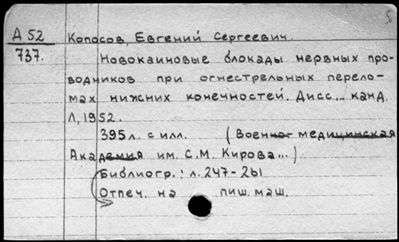 А 52 Копосов, Евгений Сергеевич.
737. Новокаиновые блокады нервных про-
водников при огнестрельных перело-
мах нижних конечностей. Дисс... канд.
Л, 1952.
395л. с илл. (Военно медицинская
Академия им. С.М. Кирова...)
Библиогр.: л. 247-261
Отпеч. на пиш. маш.